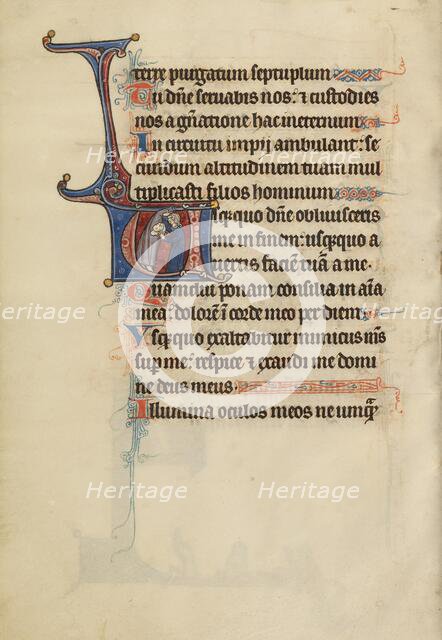 terre purgatum septuplum
Tu dñe seruabis nos: et custodies
nos a gñatione hac in eternum
In circuitu impii ambulant: se
cundum altitudinem tuam mul
tiplicasti filios hominum
Usq̄quo dñe obliuisceris
me in finem: usq̄quo a
uertis faciem tuā a me.
Quamdiu ponam consilia in aīa
mea: dolorem corde meo per diem
Usq̄quo exaltabitur inimicus m̄s
sup me: respice et exaudi me domi
ne deus meus.
Illumina oculos meos ne unq̄
Heritage
Heritage
Heritage
Heritage
Heritage
Heritage
Heritage